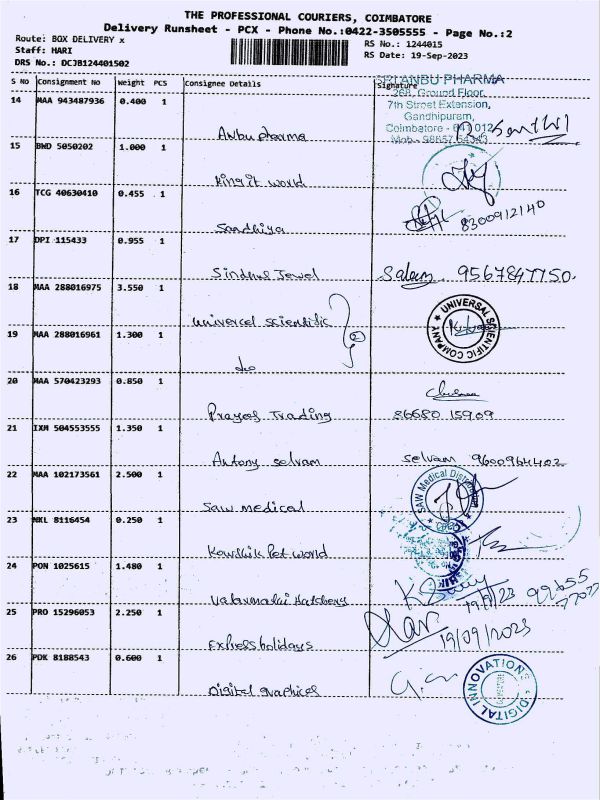 THE PROFESSIONAL COURIERS, COIMBATORE
Delivery Runsheet - PCX - Phone No.:0422-3505555 - Page No.:2
Route: BOX DELIVERY x
RS No.: 1244015
Staff: HARI
RS Date: 19-Sep-2023
DRS No.: DCJB124401502
S No Consignment No Weight PCS Consignee Details Signature
SRI ANBU PHARMA
268, Ground Floor,
7th Street Extension,
Gandhipuram,
Coimbatore - 641 012
14 MAA 943487936 0.400 1
Anbu pharma
15 BWD 5050202 1.000 1
King it world
16 TCG 40630410 0.455 1
Sandhiya 8300912140
17 DPI 115433 0.955 1
Sindhus Jewel 9567847750
18 MAA 288016975 3.550 1
Univercel scientific
UNIVERSAL SCIENTIFIC COMPANY
19 MAA 288016961 1.300 1
do
20 MAA 570423293 0.850 1
Prayas Trading 86680 15909
21 IXM 504553555 1.350 1
Antony selvam selvam 9600964402
22 MAA 102173561 2.500 1
Saw medical
SAW Medical
23 NXL 8116454 0.250 1
Kowshik Pet world
24 PON 1025615 1.480 1
Hatchery 19/9/23
25 PRO 15296053 2.250 1
Express holidays 19/09/2023
26 PDK 8188543 0.600 1
Digital graphics
DIGITAL INNOVATIONS